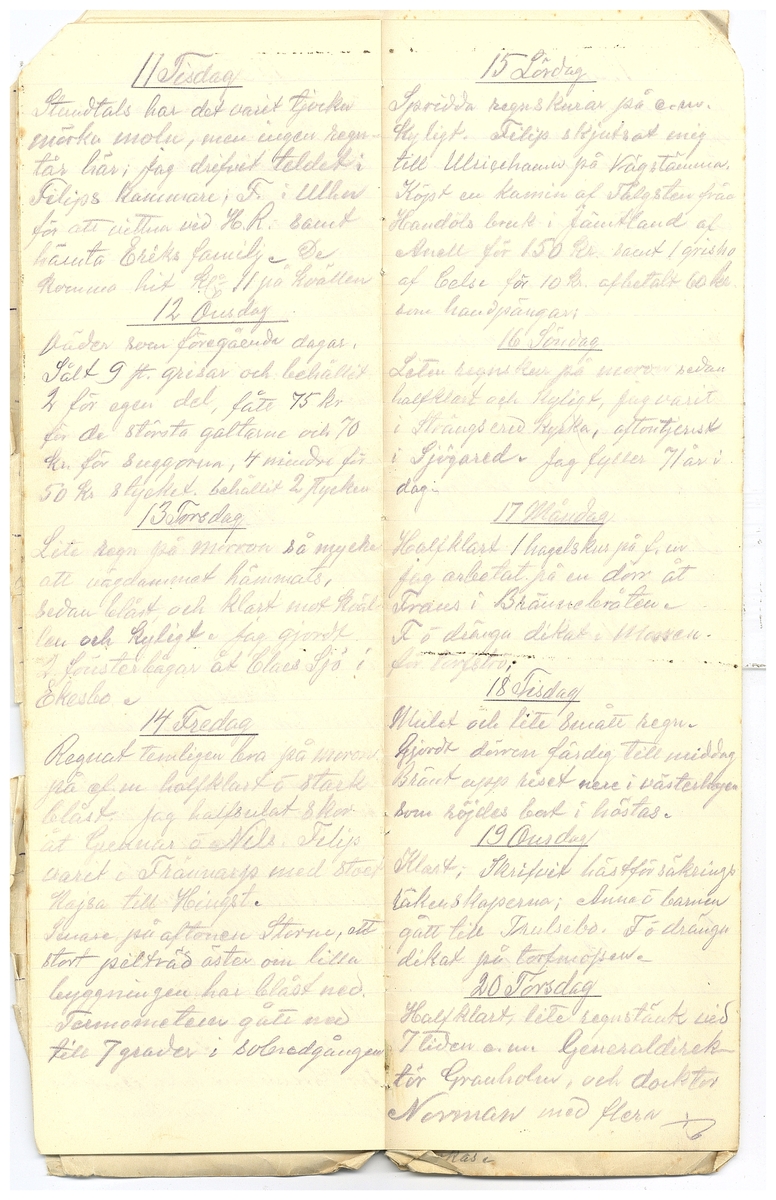 11 Tisdag
Stundtals har det varit tjocka
mörka moln, men ingen regn-
tår här; jag drifvit teldet i
Filips kammare; F. i Ulhn
för att vittna vid H.R. samt
hämta Eriks familj. De
komma hit kl. 11 på kvällen
12 Onsdag
Väder som föregående dagar.
Sålt 9 st. grisar och behållit
2 för egen del, fått 75 kr
för de största galtarne och 70
kr. för suggorna, 4 mindre för
50 kr stycket. behållit 2 stycken
13 Torsdag
Lite regn på morron så mycke
att vägdammet hämmats,
sedan blåst och klart mot kväl-
len och kyligt. jag gjordt
2 fönsterbågar åt Claes Sjö i
Ekesbo.
14 Fredag
Regnat temligen bra på morron
på ef.m halfklart o stark
blåst. jag halfsulat skor
åt Gunnar o Nils. Filip
varit i Frännarp med stoet
Kajsa till Hingst.
Senare på aftonen Storm, ett
stort pilträd öster om lilla
byggningen har blåst ned.
Termometern gått ned
till 7 grader i solnedgången
15 Lördag
Spridda regnskurar på e.m.
kyligt. Filip skjutsat mig
till Ulricehamn på Vägstämma.
Köpt en kamin af Tälgsten från
Handöls bruk i Jämtland af
Anell för 150 kr. samt 1 grisho
af Celse för 10 kr. afbetalt 60 kr.
som handpängar.
16 Söndag
Liten regnskur på morron sedan
halfklart och kyligt, jag varit
i Strängsered kyrka, aftontjenst
i Sjögared. Jag fyller 71 år i
dag.
17 Måndag
Halfklart 1 hagelskur på f.m
jag arbetat på en dörr åt
Frans i Brännebråten.
F o dränga dikat i Mossen.
för torfströ;
18 Tisdag
Mulet och lite smått regn.
Gjordt dörren färdig till middag
Bränt upp riset nere i västerhagen
som röjdes bort i höstas.
19 Onsdag
Klart; Skrifvit hästförsäkrings
räkenskaperna; Anna o barnen
gått till Trulsebo. F o dränga
dikat på torfmossen.
20 Torsdag
Halfklart, lite regnstänk vid
7 tiden e.m Generaldirek-
tör Granholm, och docktor
Norman med flera